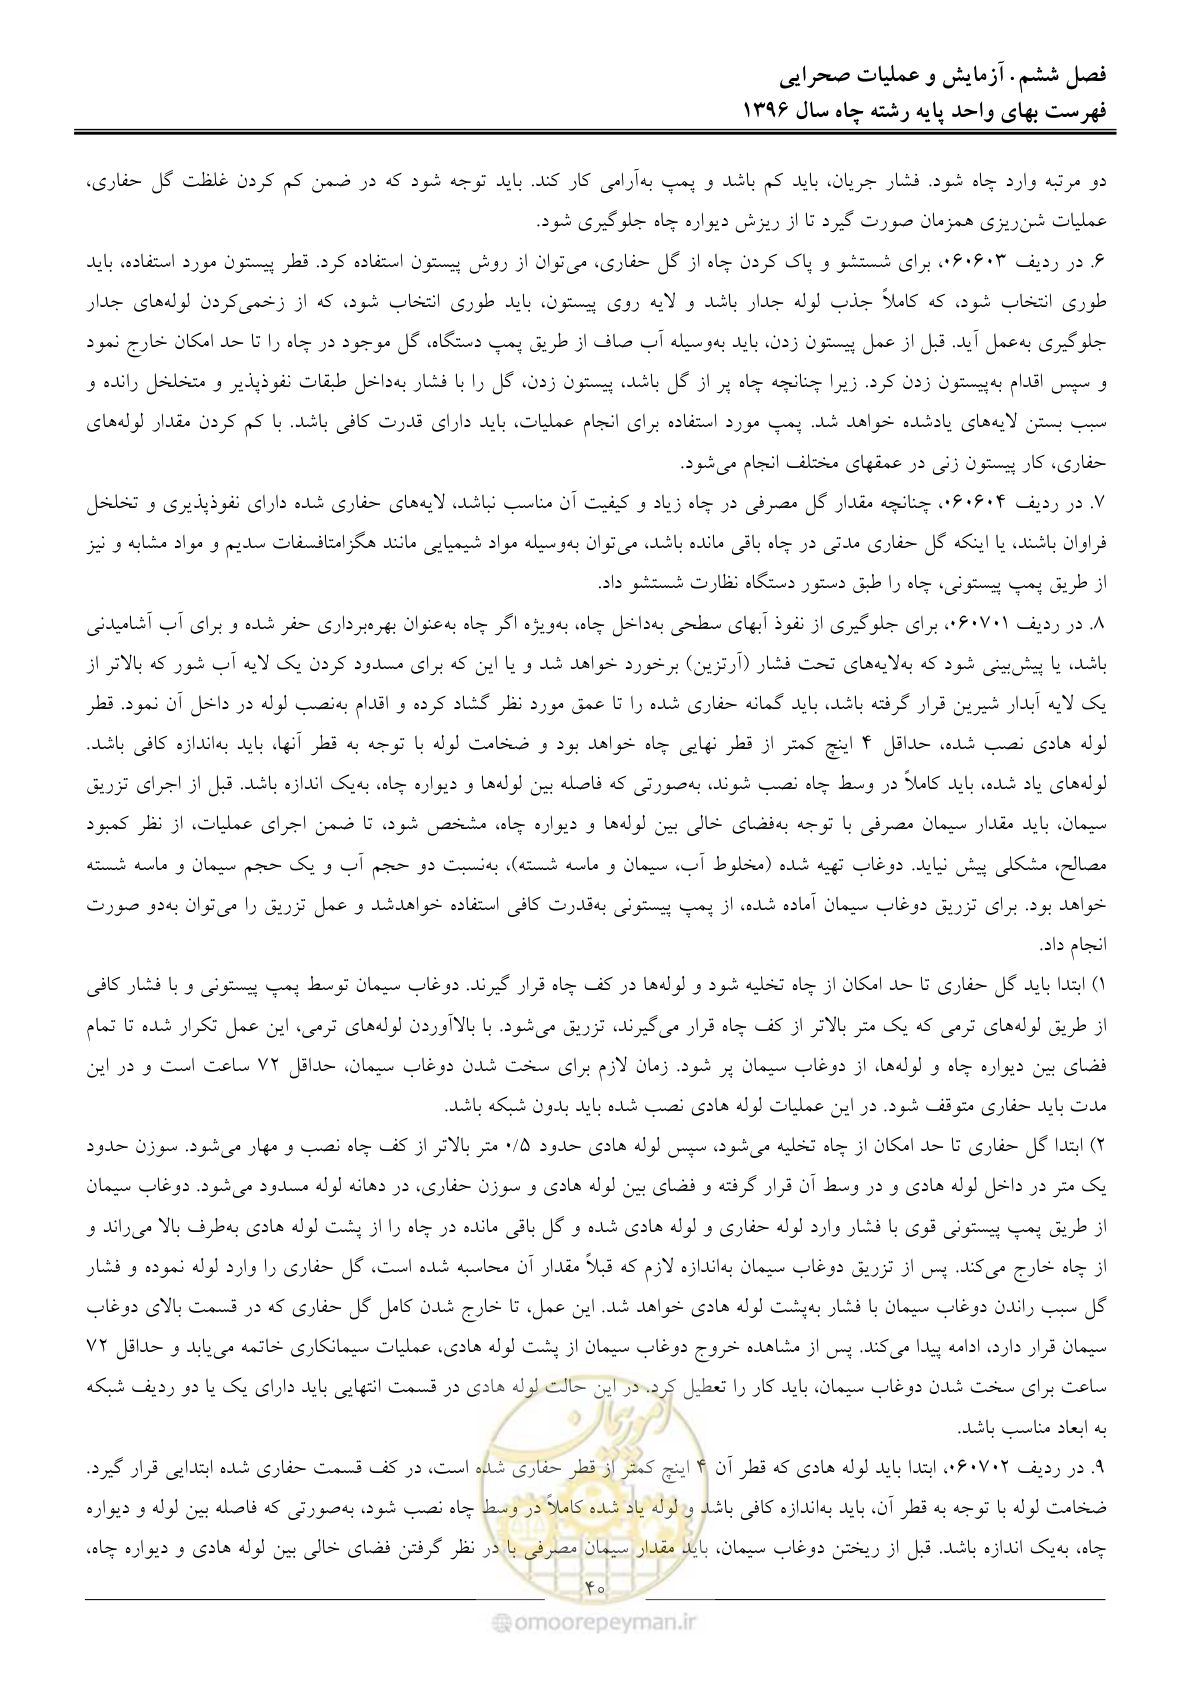 فصل ششم. آزمایش و عملیات صحرایی
فهرست بهای واحد پایه رشته چاه سال ۱۳۹۶
دو مرتبه وارد چاه شود. فشار جریان، باید کم باشد و پمپ به‌آرامی کار کند. باید توجه شود که در ضمن کم کردن غلظت گل حفاری،
عملیات شن‌ریزی همزمان صورت گیرد تا از ریزش دیواره چاه جلوگیری شود.
۶. در ردیف ۰۶۰۶۰۳، برای شستشو و پاک کردن چاه از گل حفاری، می‌توان از روش پیستون استفاده کرد. قطر پیستون مورد استفاده، باید
طوری انتخاب شود، که کاملاً جذب لوله جدار باشد و لایه روی پیستون، باید طوری انتخاب شود، که از زخمی‌کردن لوله‌های جدار
جلوگیری به‌عمل آید. قبل از عمل پیستون زدن، باید به‌وسیله آب صاف از طریق پمپ دستگاه، گل موجود در چاه را تا حد امکان خارج نمود
و سپس اقدام به‌پیستون زدن کرد. زیرا چنانچه چاه پر از گل باشد، پیستون زدن، گل را با فشار به‌داخل طبقات نفوذپذیر و متخلخل رانده و
سبب بستن لایه‌های یادشده خواهد شد. پمپ مورد استفاده برای انجام عملیات، باید دارای قدرت کافی باشد. با کم کردن مقدار لوله‌های
حفاری، کار پیستون زنی در عمقهای مختلف انجام می‌شود.
۷. در ردیف ۰۶۰۶۰۴، چنانچه مقدار گل مصرفی در چاه زیاد و کیفیت آن مناسب نباشد، لایه‌های حفاری شده دارای نفوذپذیری و تخلخل
فراوان باشند، یا اینکه گل حفاری مدتی در چاه باقی مانده باشد، می‌توان به‌وسیله مواد شیمیایی مانند هگزامتافسفات سدیم و مواد مشابه و نیز
از طریق پمپ پیستونی، چاه را طبق دستور دستگاه نظارت شستشو داد.
۸. در ردیف ۰۶۰۷۰۱، برای جلوگیری از نفوذ آبهای سطحی به‌داخل چاه، به‌ویژه اگر چاه به‌عنوان بهره‌برداری حفر شده و برای آب آشامیدنی
باشد، یا پیش‌بینی شود که به‌لایه‌های تحت فشار (آرتزین) برخورد خواهد شد و یا این که برای مسدود کردن یک لایه آب شور که بالاتر از
یک لایه آبدار شیرین قرار گرفته باشد، باید گمانه حفاری شده را تا عمق مورد نظر گشاد کرده و اقدام به‌نصب لوله در داخل آن نمود. قطر
لوله هادی نصب شده، حداقل ۴ اینچ کمتر از قطر نهایی چاه خواهد بود و ضخامت لوله با توجه به قطر آنها، باید به‌اندازه کافی باشد.
لوله‌های یاد شده، باید کاملاً در وسط چاه نصب شوند، به‌صورتی که فاصله بین لوله‌ها و دیواره چاه، به‌یک اندازه باشد. قبل از اجرای تزریق
سیمان، باید مقدار سیمان مصرفی با توجه به‌فضای خالی بین لوله‌ها و دیواره چاه، مشخص شود، تا ضمن اجرای عملیات، از نظر کمبود
مصالح، مشکلی پیش نیاید. دوغاب تهیه شده (مخلوط آب، سیمان و ماسه شسته)، به‌نسبت دو حجم آب و یک حجم سیمان و ماسه شسته
خواهد بود. برای تزریق دوغاب سیمان آماده شده، از پمپ پیستونی به‌قدرت کافی استفاده خواهدشد و عمل تزریق را می‌توان به‌دو صورت
انجام داد.
۱) ابتدا باید گل حفاری تا حد امکان از چاه تخلیه شود و لوله‌ها در کف چاه قرار گیرند. دوغاب سیمان توسط پمپ پیستونی و با فشار کافی
از طریق لوله‌های ترمی که یک متر بالاتر از کف چاه قرار می‌گیرند، تزریق می‌شود. با بالاآوردن لوله‌های ترمی، این عمل تکرار شده تا تمام
فضای بین دیواره چاه و لوله‌ها، از دوغاب سیمان پر شود. زمان لازم برای سخت شدن دوغاب سیمان، حداقل ۷۲ ساعت است و در این
مدت باید حفاری متوقف شود. در این عملیات لوله هادی نصب شده باید بدون شبکه باشد.
۲) ابتدا گل حفاری تا حد امکان از چاه تخلیه می‌شود، سپس لوله هادی حدود ۰/۵ متر بالاتر از کف چاه نصب و مهار می‌شود. سوزن حدود
یک متر در داخل لوله هادی و در وسط آن قرار گرفته و فضای بین لوله هادی و سوزن حفاری، در دهانه لوله مسدود می‌شود. دوغاب سیمان
از طریق پمپ پیستونی قوی با فشار وارد لوله حفاری و لوله هادی شده و گل باقی مانده در چاه را از پشت لوله هادی به‌طرف بالا می‌راند و
از چاه خارج می‌کند. پس از تزریق دوغاب سیمان به‌اندازه لازم که قبلاً مقدار آن محاسبه شده است، گل حفاری را وارد لوله نموده و فشار
گل سبب راندن دوغاب سیمان با فشار به‌پشت لوله هادی خواهد شد. این عمل، تا خارج شدن کامل گل حفاری که در قسمت بالای دوغاب
سیمان قرار دارد، ادامه پیدا می‌کند. پس از مشاهده خروج دوغاب سیمان از پشت لوله هادی، عملیات سیمانکاری خاتمه می‌یابد و حداقل ۷۲
ساعت برای سخت شدن دوغاب سیمان، باید کار را تعطیل کرد. در این حالت لوله هادی در قسمت انتهایی باید دارای یک یا دو ردیف شبکه
به ابعاد مناسب باشد.
۹. در ردیف ۰۶۰۷۰۲، ابتدا باید لوله هادی که قطر آن ۴ اینچ کمتر از قطر حفاری شده است، در کف قسمت حفاری شده ابتدایی قرار گیرد.
ضخامت لوله با توجه به قطر آن، باید به‌اندازه کافی باشد و لوله یاد شده کاملاً در وسط چاه نصب شود، به‌صورتی که فاصله بین لوله و دیواره
چاه، به‌یک اندازه باشد. قبل از ریختن دوغاب سیمان، باید مقدار سیمان مصرفی با در نظر گرفتن فضای خالی بین لوله هادی و دیواره چاه،
امور پیمان
۴۰
omoorepeyman.ir